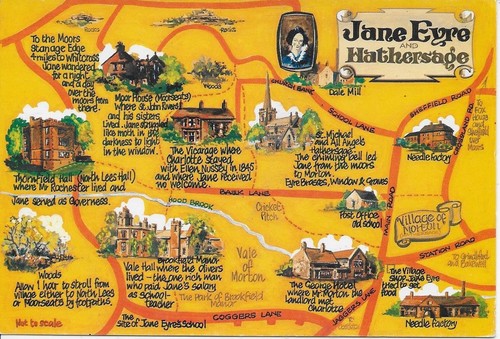 Jane Eyre
AND
Hathersage
To the Moors
Stanage Edge
4 miles to Whitcross
Jane wandered
for a night
and a day
over the
moors from
there.
Rocks
Rocks
Woods
Moor House (Moorseats)
Where St. John Rivers
and his sisters
lived. Jane stumbled
like moth in the
darkness to light
in the window.
Dale Mill
SCHOOL LANE
SHEFFIELD ROAD
The Vicarage where
Charlotte stayed
with Ellen Nussey in 1845
and where Jane received
no welcome.
St. Michael
and All Angels
Hathersage
The chiming bell led
Jane from the moors
to Morton
Eyre Brasses, Window & Graves
Needle Factory
Thornfield Hall (North Lees Hall)
where Mr Rochester lived and
Jane served as Governess.
BAULK LANE
HOOD BROOK
Cricket
Pitch
Post Office
Old School
MAIN ROAD
Village of
Morton
STATION ROAD
To Grindleford
and Bakewell
Woods
Allow 1 hour to stroll from
village either to North Lees
or Moorseats by footpaths.
Brookfield Manor
Vale Hall where the Olivers
lived - the one rich man
who paid Jane's salary
as school-
teacher
Vale
of
Morton
The Park of Brookfield
Manor
The George Hotel
where Mr. Morton the
landlord met
Charlotte
The Village
Shop Jane Eyre
tried to get
food
Needle Factory
Not to scale
The
Site of Jane Eyre's School
COGGERS LANE
JAGGERS LANE